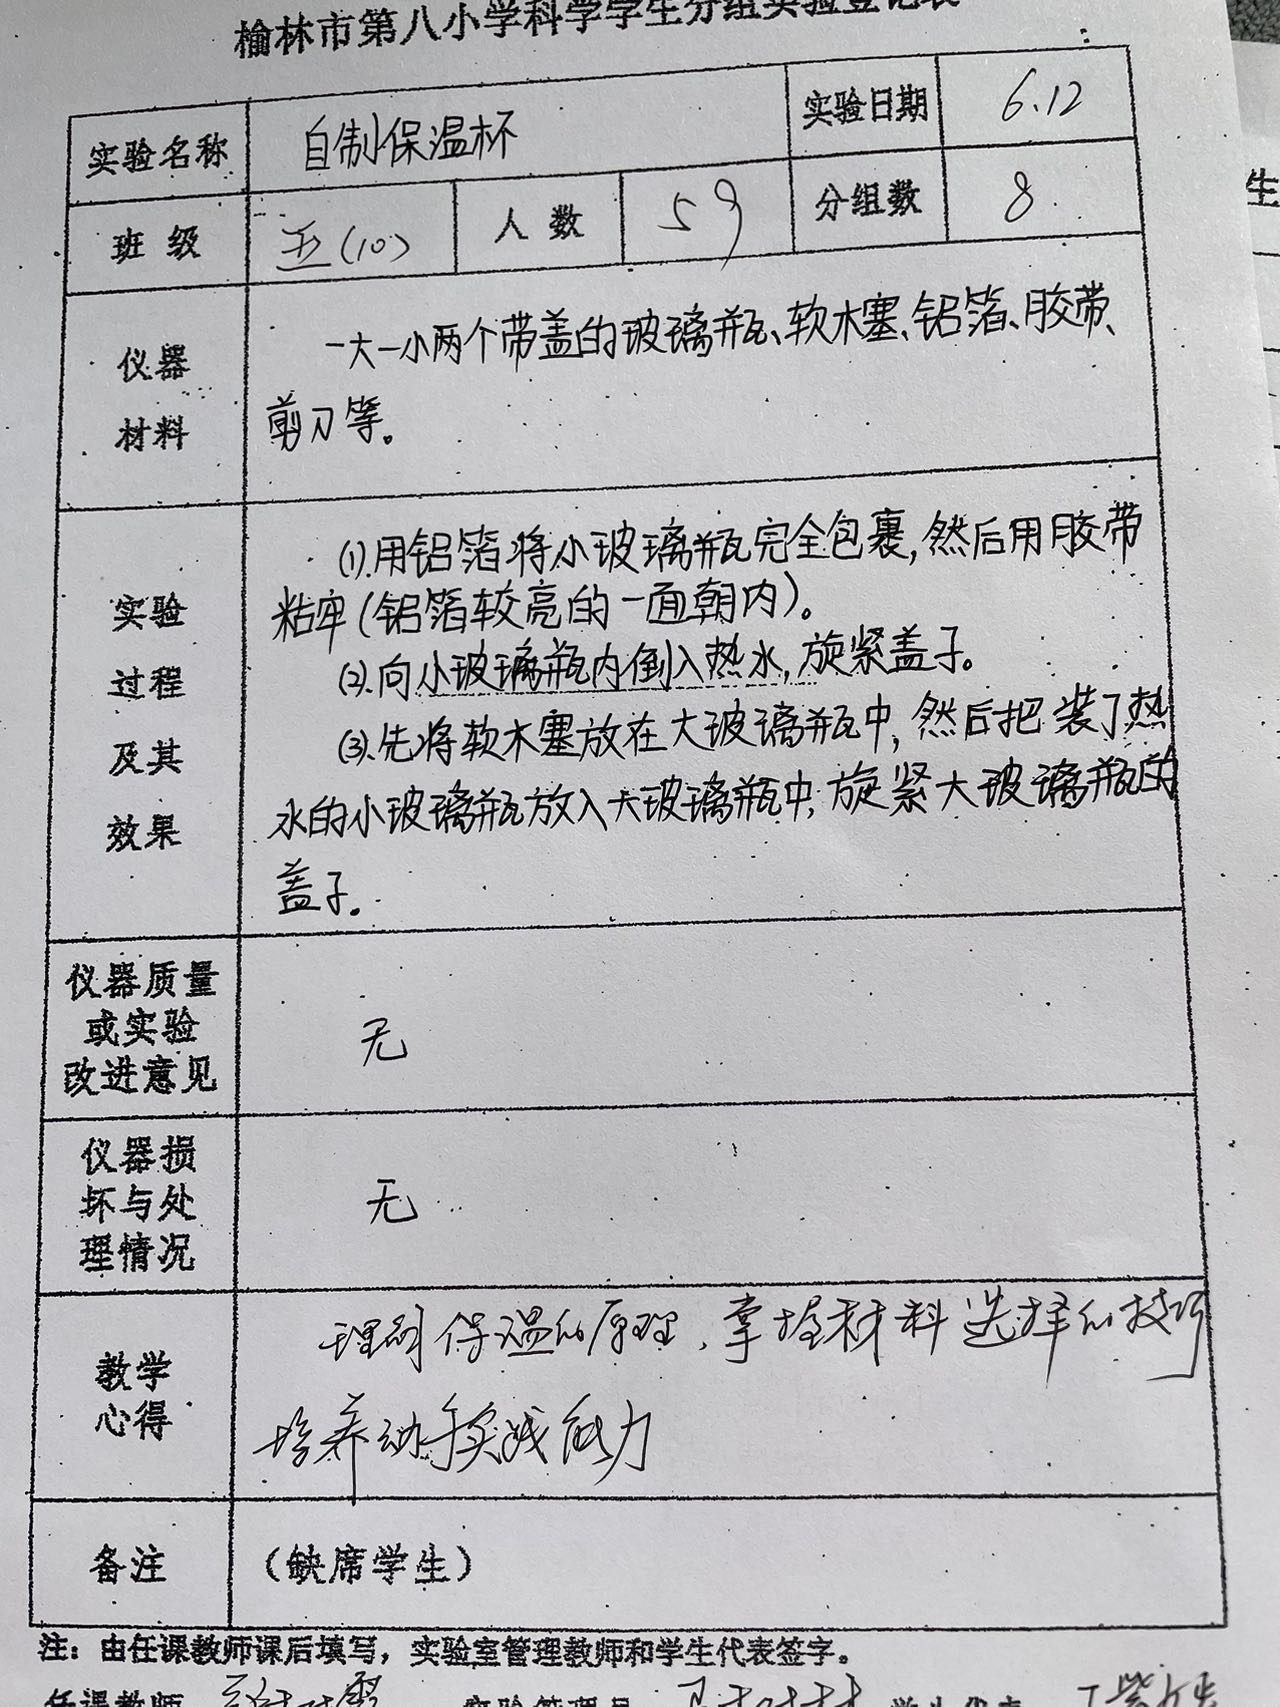 榆林市第八小学科学学生分组实验登记表
实验名称 自制保温杯 实验日期 6.12
班级 五(10) 人数 59 分组数 8
仪器
材料
一大一小两个带盖的玻璃瓶、软木塞、铝箔、胶带、
剪刀等。
实验
过程
及其
效果
(1).用铝箔将小玻璃瓶完全包裹,然后用胶带
粘牢(铝箔较亮的一面朝内)。
(2).向小玻璃瓶内倒入热水,旋紧盖子。
(3).先将软木塞放在大玻璃瓶中,然后把装了热
水的小玻璃瓶放入大玻璃瓶中,旋紧大玻璃瓶的
盖子。
仪器质量
或实验
改进意见
无
仪器损
坏与处
理情况
无
教学
心得
理解保温的原理,掌握材料选择的技巧
培养动手实践能力
备注 (缺席学生)
注:由任课教师课后填写,实验室管理教师和学生代表签字。
任课教师 实验管理员 学生代表
生